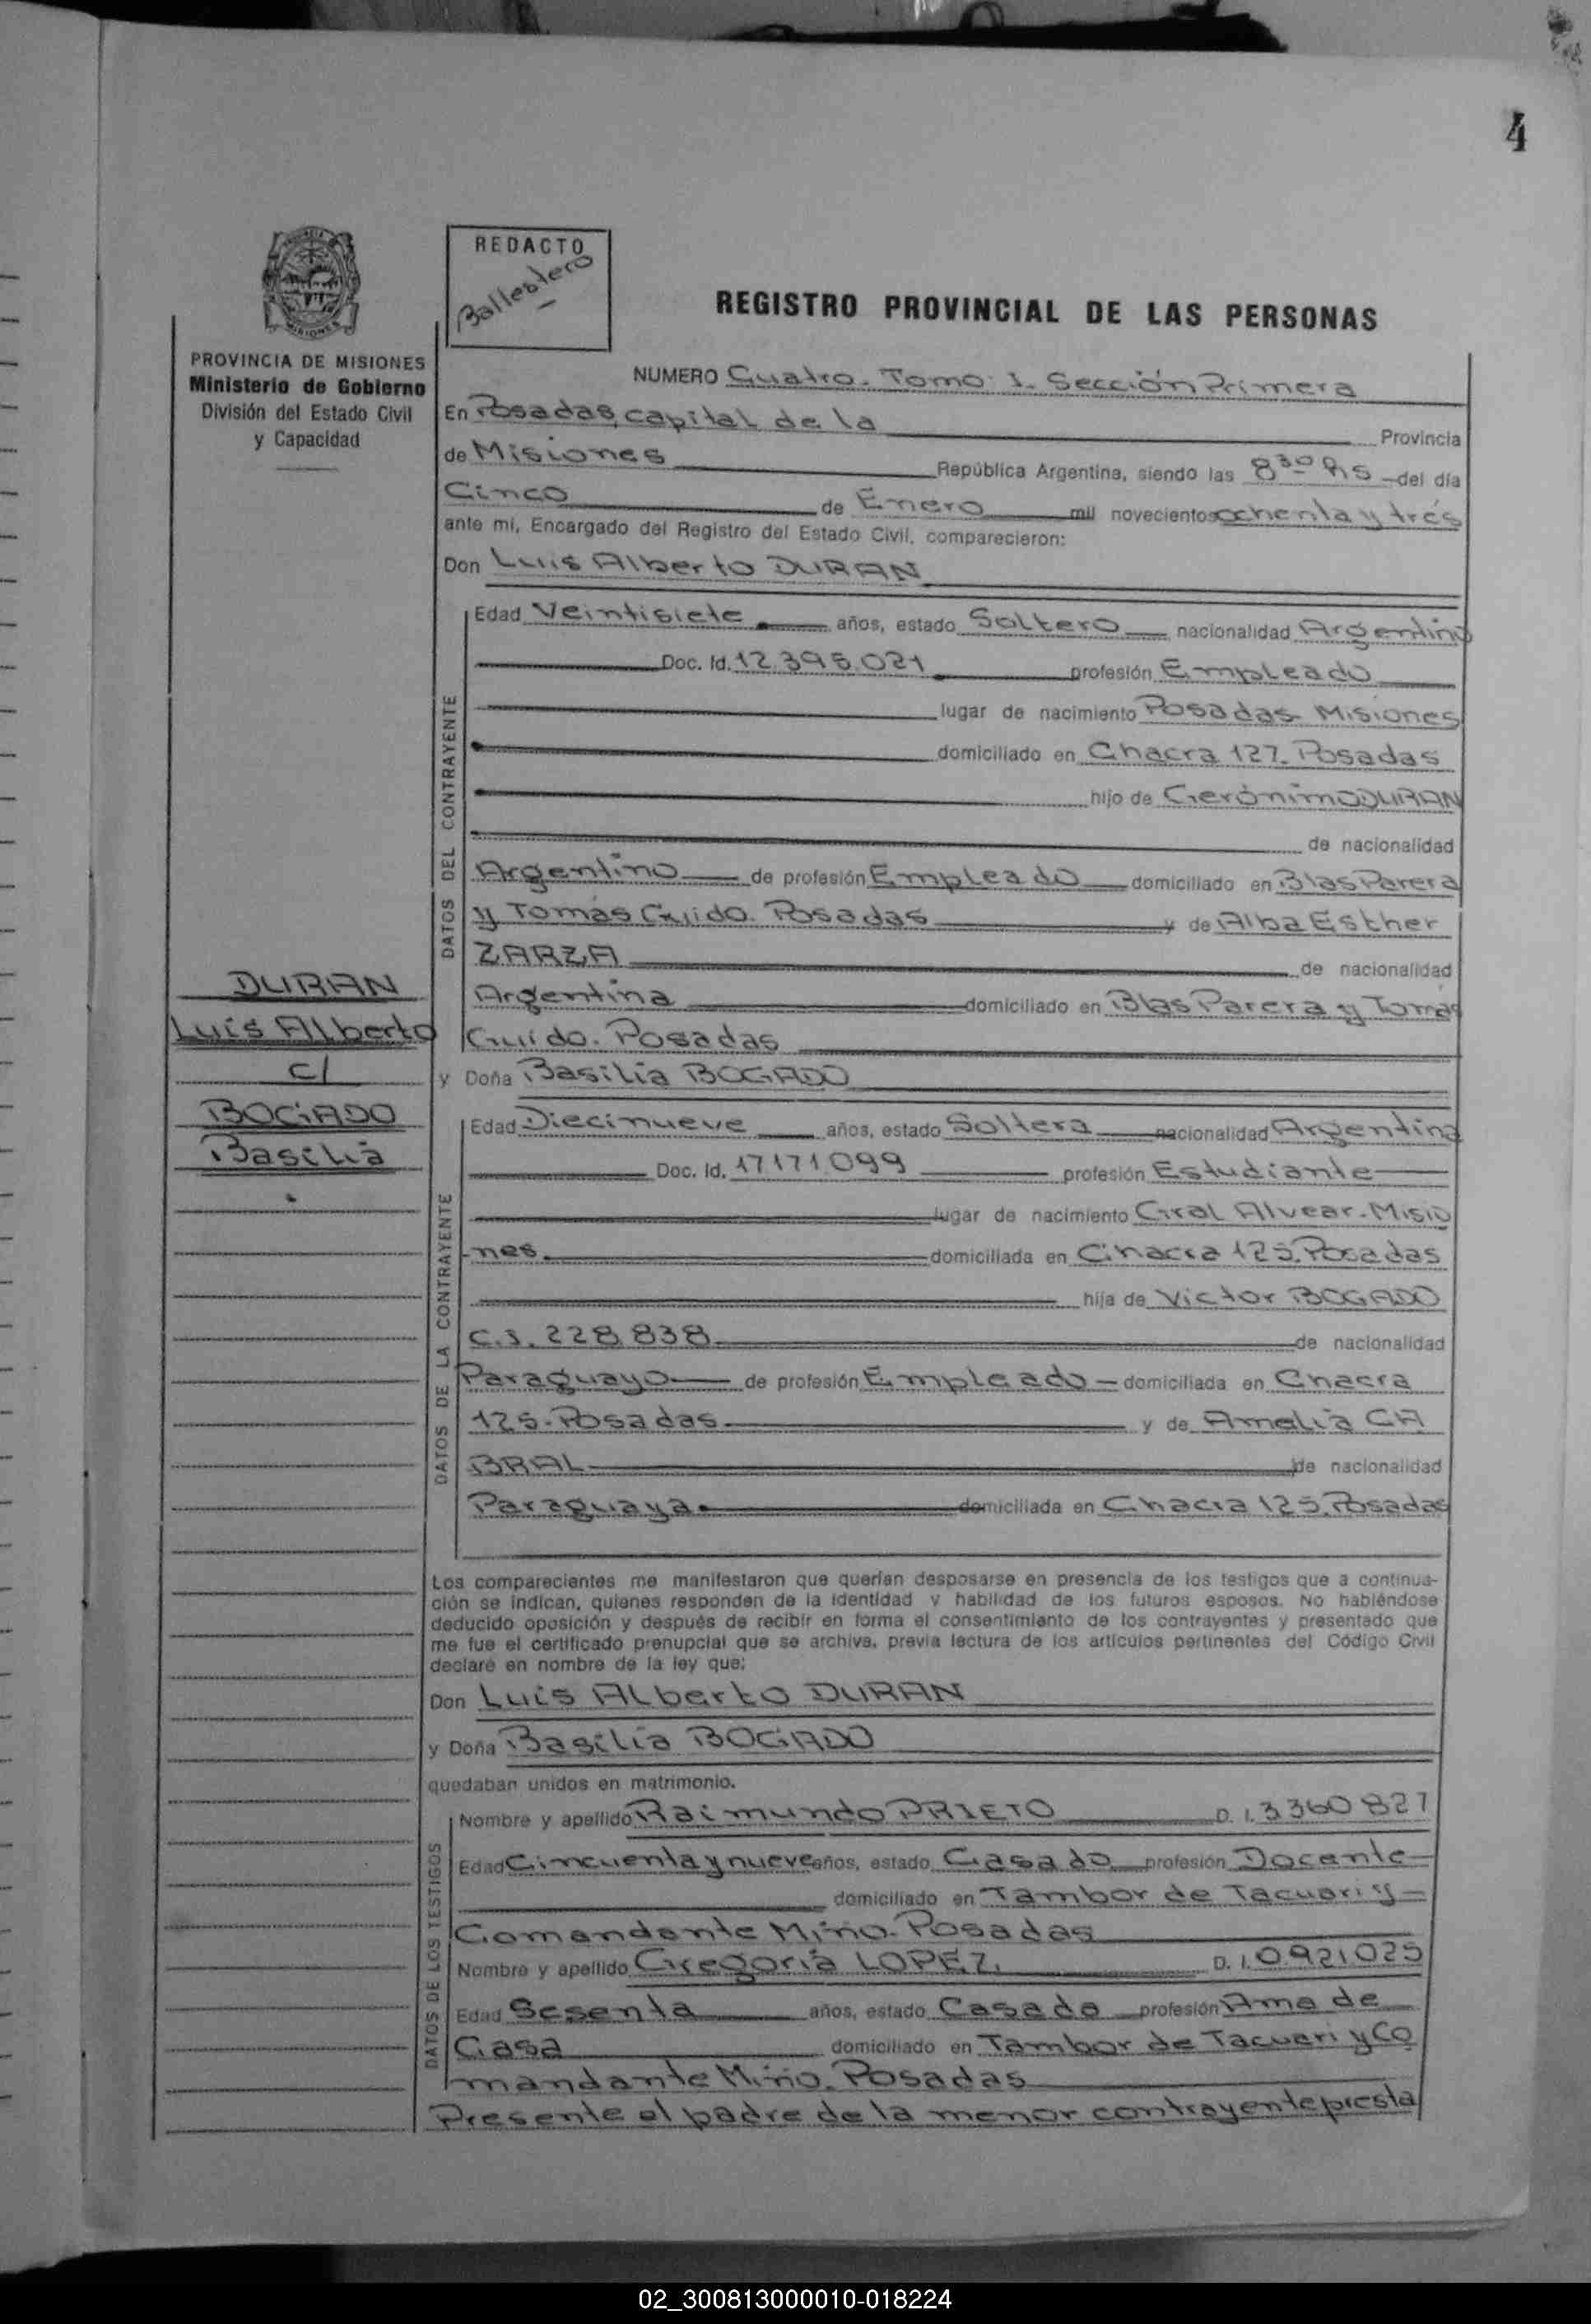 4
PROVINCIA DE MISIONES
Ministerio de Gobierno
División del Estado Civil
y Capacidad
REDACTO
Ballestero
REGISTRO PROVINCIAL DE LAS PERSONAS
NUMERO Cuatro. Tomo: 1. Sección Primera
En Posadas, capital de la Provincia
de Misiones República Argentina, siendo las 8 30 hs del día
Cinco de Enero mil novecientos ochenta y tres
ante mi, Encargado del Registro del Estado Civil, comparecieron:
Don Luis Alberto DURAN
DATOS DEL CONTRAYENTE
Edad Veintisiete años, estado Soltero nacionalidad Argentino
Doc. Id. 12.395.021 profesión Empleado
lugar de nacimiento Posadas Misiones
domiciliado en Chacra 127. Posadas
hijo de Gerónimo DURAN
de nacionalidad
Argentino de profesión Empleado domiciliado en Blas Parera
y Tomás Guido. Posadas y de Alba Esther
ZARZA de nacionalidad
Argentina domiciliado en Blas Parera y Tomás
Guido. Posadas
DURAN
Luis Alberto
c/
BOGADO
Basilia
y Doña Basilia BOGADO
DATOS DE LA CONTRAYENTE
Edad Diecinueve años, estado Soltera nacionalidad Argentina
Doc. Id. 17171.099 profesión Estudiante
lugar de nacimiento Gral Alvear-Misio
-nes domiciliada en Chacra 125. Posadas
hija de Victor BOGADO
C.I. 228.838 de nacionalidad
Paraguayo de profesión Empleado domiciliada en Chacra
125-Posadas y de Amalia CA
BRAL de nacionalidad
Paraguaya domiciliada en Chacra 125. Posadas
Los comparecientes me manifestaron que querían desposarse en presencia de los testigos que a continua-
ción se indican, quienes responden de la identidad y habilidad de los futuros esposos. No habiéndose
deducido oposición y después de recibir en forma el consentimiento de los contrayentes y presentado que
me fue el certificado prenupcial que se archiva, previa lectura de los artículos pertinentes del Código Civil
declaré en nombre de la ley que:
Don Luis Alberto DURAN
y Doña Basilia BOGADO
quedaban unidos en matrimonio.
DATOS DE LOS TESTIGOS
Nombre y apellido Raimundo PRIETO D. I. 3360827
Edad Cincuenta y nueve años, estado Casado profesión Docente
domiciliado en Tambor de Tacuari y
Comandante Miño. Posadas
Nombre y apellido Gregoria LOPEZ D. I. 0.921.025
Edad Sesenta años, estado Casada profesión Ama de
Casa domiciliado en Tambor de Tacuari y Co
mandante Miño. Posadas
Presente el padre de la menor contrayente presta
02_300813000010-018224